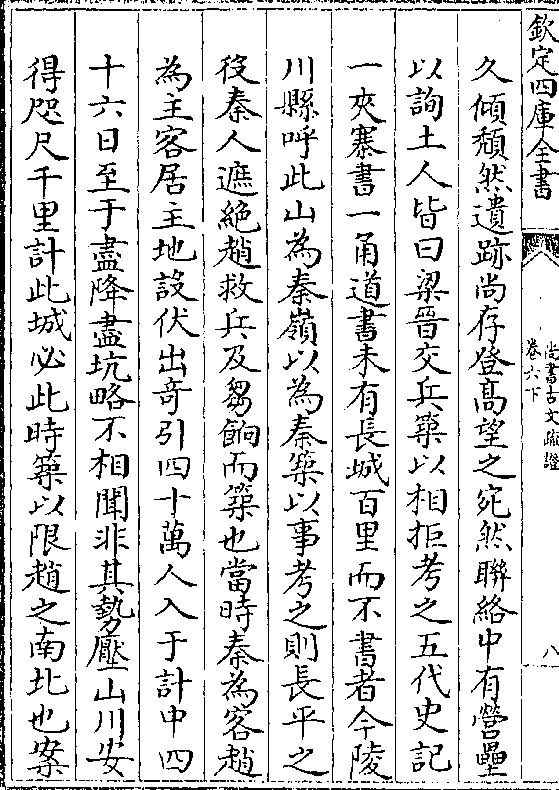 欽定四庫全書
尚書古文疏證
卷六下
八
久傾頹然遺跡尚存登髙望之宛然聯絡中有營壘
以詢土人皆曰梁晉交兵築以相拒考之五代史記
一夾寨書一甬道書未有長城百里而不書者今陵
川縣呼此山為秦嶺以為秦築以事考之則長平之
役秦人遮絶趙救兵及芻餉而築也當時秦為客趙
為主客居主地設伏出奇引四十萬人入于計中四
十六日至于盡降盡坑略不相聞非其勢壓山川安
得咫尺千里計此城必此時築以限趙之南北也案